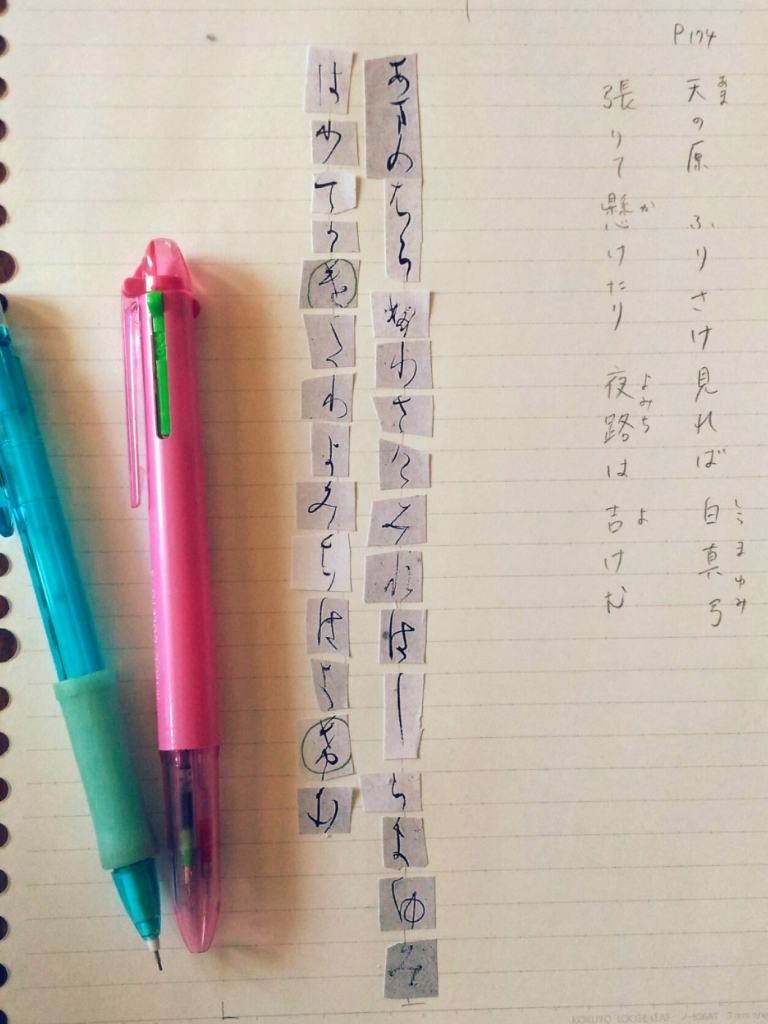 P174
天の原 ふりさけ見れば 白真弓
あま
しらまゆみ
張りて懸けたり 夜路は吉けむ
か
よみち
よ
あまのはらふりさけみれはしらまゆみ
はりてかけたりよみちはよけむ
KOKUYO LOOSE-LEAF